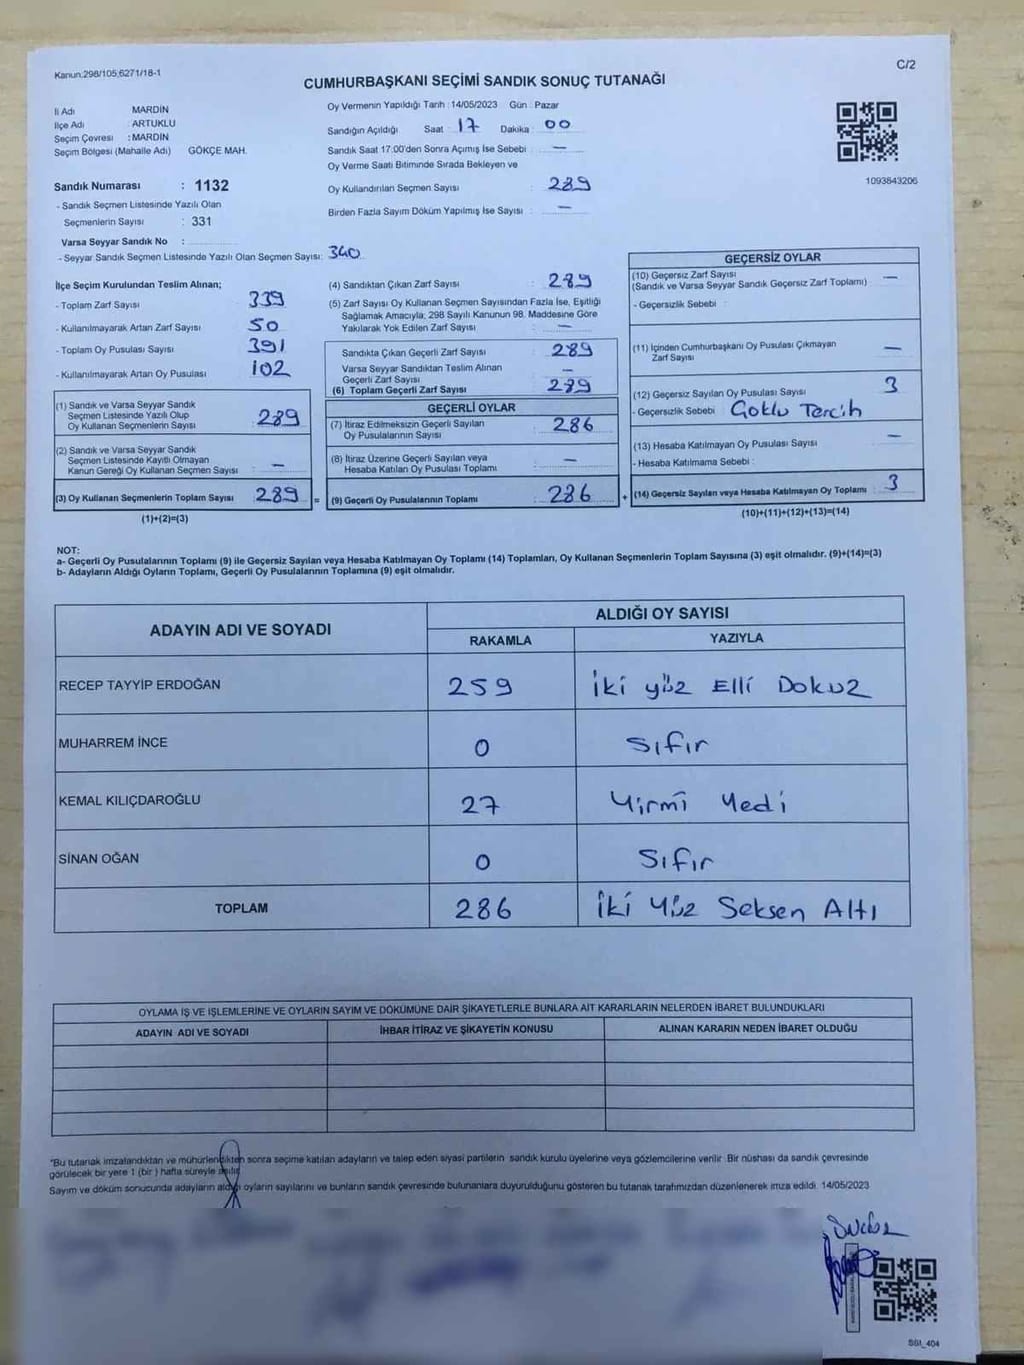 Kanun:298/105;6271/18-1
C/2
CUMHURBAŞKANI SEÇİMİ SANDIK SONUÇ TUTANAĞI
İl Adı MARDİN
İlçe Adı : ARTUKLU
Seçim Çevresi : MARDİN
Seçim Bölgesi (Mahalle Adı) GÖKÇE MAH.
Sandık Numarası : 1132
- Sandık Seçmen Listesinde Yazılı Olan
Seçmenlerin Sayısı : 331
Varsa Seyyar Sandık No :
- Seyyar Sandık Seçmen Listesinde Yazılı Olan Seçmen Sayısı: 340
Oy Vermenin Yapıldığı Tarih : 14/05/2023 Gün : Pazar
Sandığın Açıldığı Saat : 17 Dakika : 00
Sandık Saat 17:00'den Sonra Açımış İse Sebebi : —
Oy Verme Saati Bitiminde Sırada Bekleyen ve
Oy Kullandırılan Seçmen Sayısı : 289
Birden Fazla Sayım Döküm Yapılmış İse Sayısı : —
1093843206
İlçe Seçim Kurulundan Teslim Alınan;
- Toplam Zarf Sayısı 339
- Kullanılmayarak Artan Zarf Sayısı 50
- Toplam Oy Pusulası Sayısı 391
- Kullanılmayarak Artan Oy Pusulası 102
(1) Sandık ve Varsa Seyyar Sandık
Seçmen Listesinde Yazılı Olup
Oy Kullanan Seçmenlerin Sayısı : 289
(2) Sandık ve Varsa Seyyar Sandık
Seçmen Listesinde Kayıtlı Olmayan
Kanun Gereği Oy Kullanan Seçmen Sayısı : —
(3) Oy Kullanan Seçmenlerin Toplam Sayısı : 289 =
(1)+(2)=(3)
(4) Sandıktan Çıkan Zarf Sayısı : 289
(5) Zarf Sayısı Oy Kullanan Seçmen Sayısından Fazla İse, Eşitliği
Sağlamak Amacıyla; 298 Sayılı Kanunun 98. Maddesine Göre
Yakılarak Yok Edilen Zarf Sayısı : —
Sandıkta Çıkan Geçerli Zarf Sayısı : 289
Varsa Seyyar Sandıktan Teslim Alınan
Geçerli Zarf Sayısı : —
(6) Toplam Geçerli Zarf Sayısı : 289
GEÇERLİ OYLAR
(7) İtiraz Edilmeksizin Geçerli Sayılan
Oy Pusulalarının Sayısı : 286
(8) İtiraz Üzerine Geçerli Sayılan veya
Hesaba Katılan Oy Pusulası Toplamı : —
(9) Geçerli Oy Pusulalarının Toplamı : 286 +
GEÇERSİZ OYLAR
(10) Geçersiz Zarf Sayısı : —
(Sandık ve Varsa Seyyar Sandık Geçersiz Zarf Toplamı)
- Geçersizlik Sebebi :
(11) İçinden Cumhurbaşkanı Oy Pusulası Çıkmayan
Zarf Sayısı : —
(12) Geçersiz Sayılan Oy Pusulası Sayısı : 3
- Geçersizlik Sebebi : Çoklu Tercih
(13) Hesaba Katılmayan Oy Pusulası Sayısı : —
- Hesaba Katılmama Sebebi :
(14) Geçersiz Sayılan veya Hesaba Katılmayan Oy Toplamı : 3
(10)+(11)+(12)+(13)=(14)
NOT:
a- Geçerli Oy Pusulalarının Toplamı (9) ile Geçersiz Sayılan veya Hesaba Katılmayan Oy Toplamı (14) Toplamları, Oy Kullanan Seçmenlerin Toplam Sayısına (3) eşit olmalıdır. (9)+(14)=(3)
b- Adayların Aldığı Oyların Toplamı, Geçerli Oy Pusulalarının Toplamına (9) eşit olmalıdır.
ADAYIN ADI VE SOYADI
ALDIĞI OY SAYISI
RAKAMLA YAZIYLA
RECEP TAYYİP ERDOĞAN 259 İki yüz Elli Dokuz
MUHARREM İNCE 0 Sıfır
KEMAL KILIÇDAROĞLU 27 Yirmi Yedi
SİNAN OĞAN 0 Sıfır
TOPLAM 286 İki Yüz Seksen Altı
OYLAMA İŞ VE İŞLEMLERİNE VE OYLARIN SAYIM VE DÖKÜMÜNE DAİR ŞİKAYETLERLE BUNLARA AİT KARARLARIN NELERDEN İBARET BULUNDUKLARI
ADAYIN ADI VE SOYADI İHBAR İTİRAZ VE ŞİKAYETİN KONUSU ALINAN KARARIN NEDEN İBARET OLDUĞU
"Bu tutanak imzalandıktan ve mühürlendikten sonra seçime katılan adayların ve talep eden siyasi partilerin sandık kurulu üyelerine veya gözlemcilerine verilir. Bir nüshası da sandık çevresinde
görülecek bir yere 1 (bir ) hafta süreyle asılır.
Sayım ve döküm sonucunda adayların aldığı oyların sayılarını ve bunların sandık çevresinde bulunanlara duyurulduğunu gösteren bu tutanak tarafımızdan düzenlenerek imza edildi. 14/05/2023
SSI_404